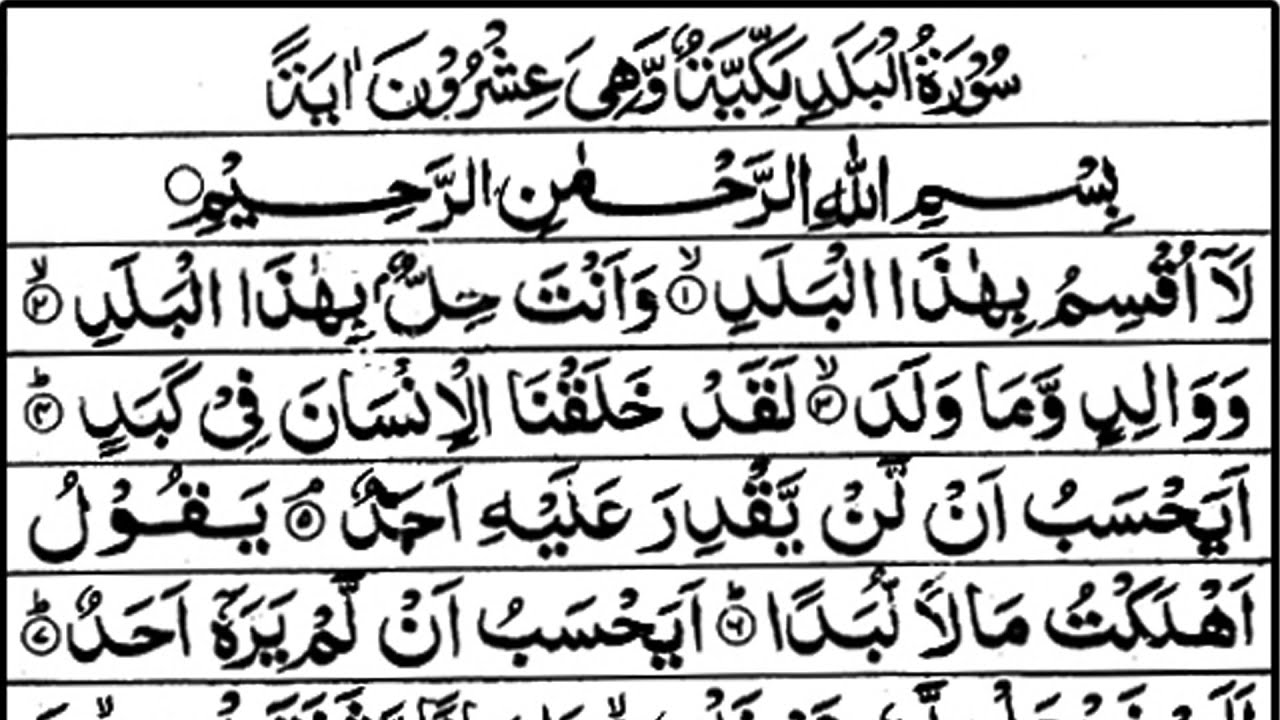 سُوْرَةُ الْبَلَدِ مَكِّيَّةٌ وَّهِىَ عِشْرُوْنَ اٰيَةً
بِسْمِ اللّٰهِ الرَّحْمٰنِ الرَّحِيْمِ ○
لَاۤ اُقْسِمُ بِهٰذَا الْبَلَدِ ۙ﴿۱﴾ وَاَنْتَ حِلٌّۢ بِهٰذَا الْبَلَدِ ۙ﴿۲﴾
وَوَالِدٍ وَّمَا وَلَدَ ۙ﴿۳﴾ لَقَدْ خَلَقْنَا الْاِنْسَانَ فِىْ كَبَدٍ ؕ﴿۴﴾
اَيَحْسَبُ اَنْ لَّنْ يَّقْدِرَ عَلَيْهِ اَحَدٌ ۘ﴿۵﴾ يَقُوْلُ
اَهْلَكْتُ مَالًا لُّبَدًا ؕ﴿۶﴾ اَيَحْسَبُ اَنْ لَّمْ يَرَهٗۤ اَحَدٌ ؕ﴿۷﴾